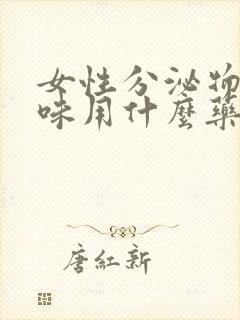 女性分泌物
味用什麼藥
唐紅新